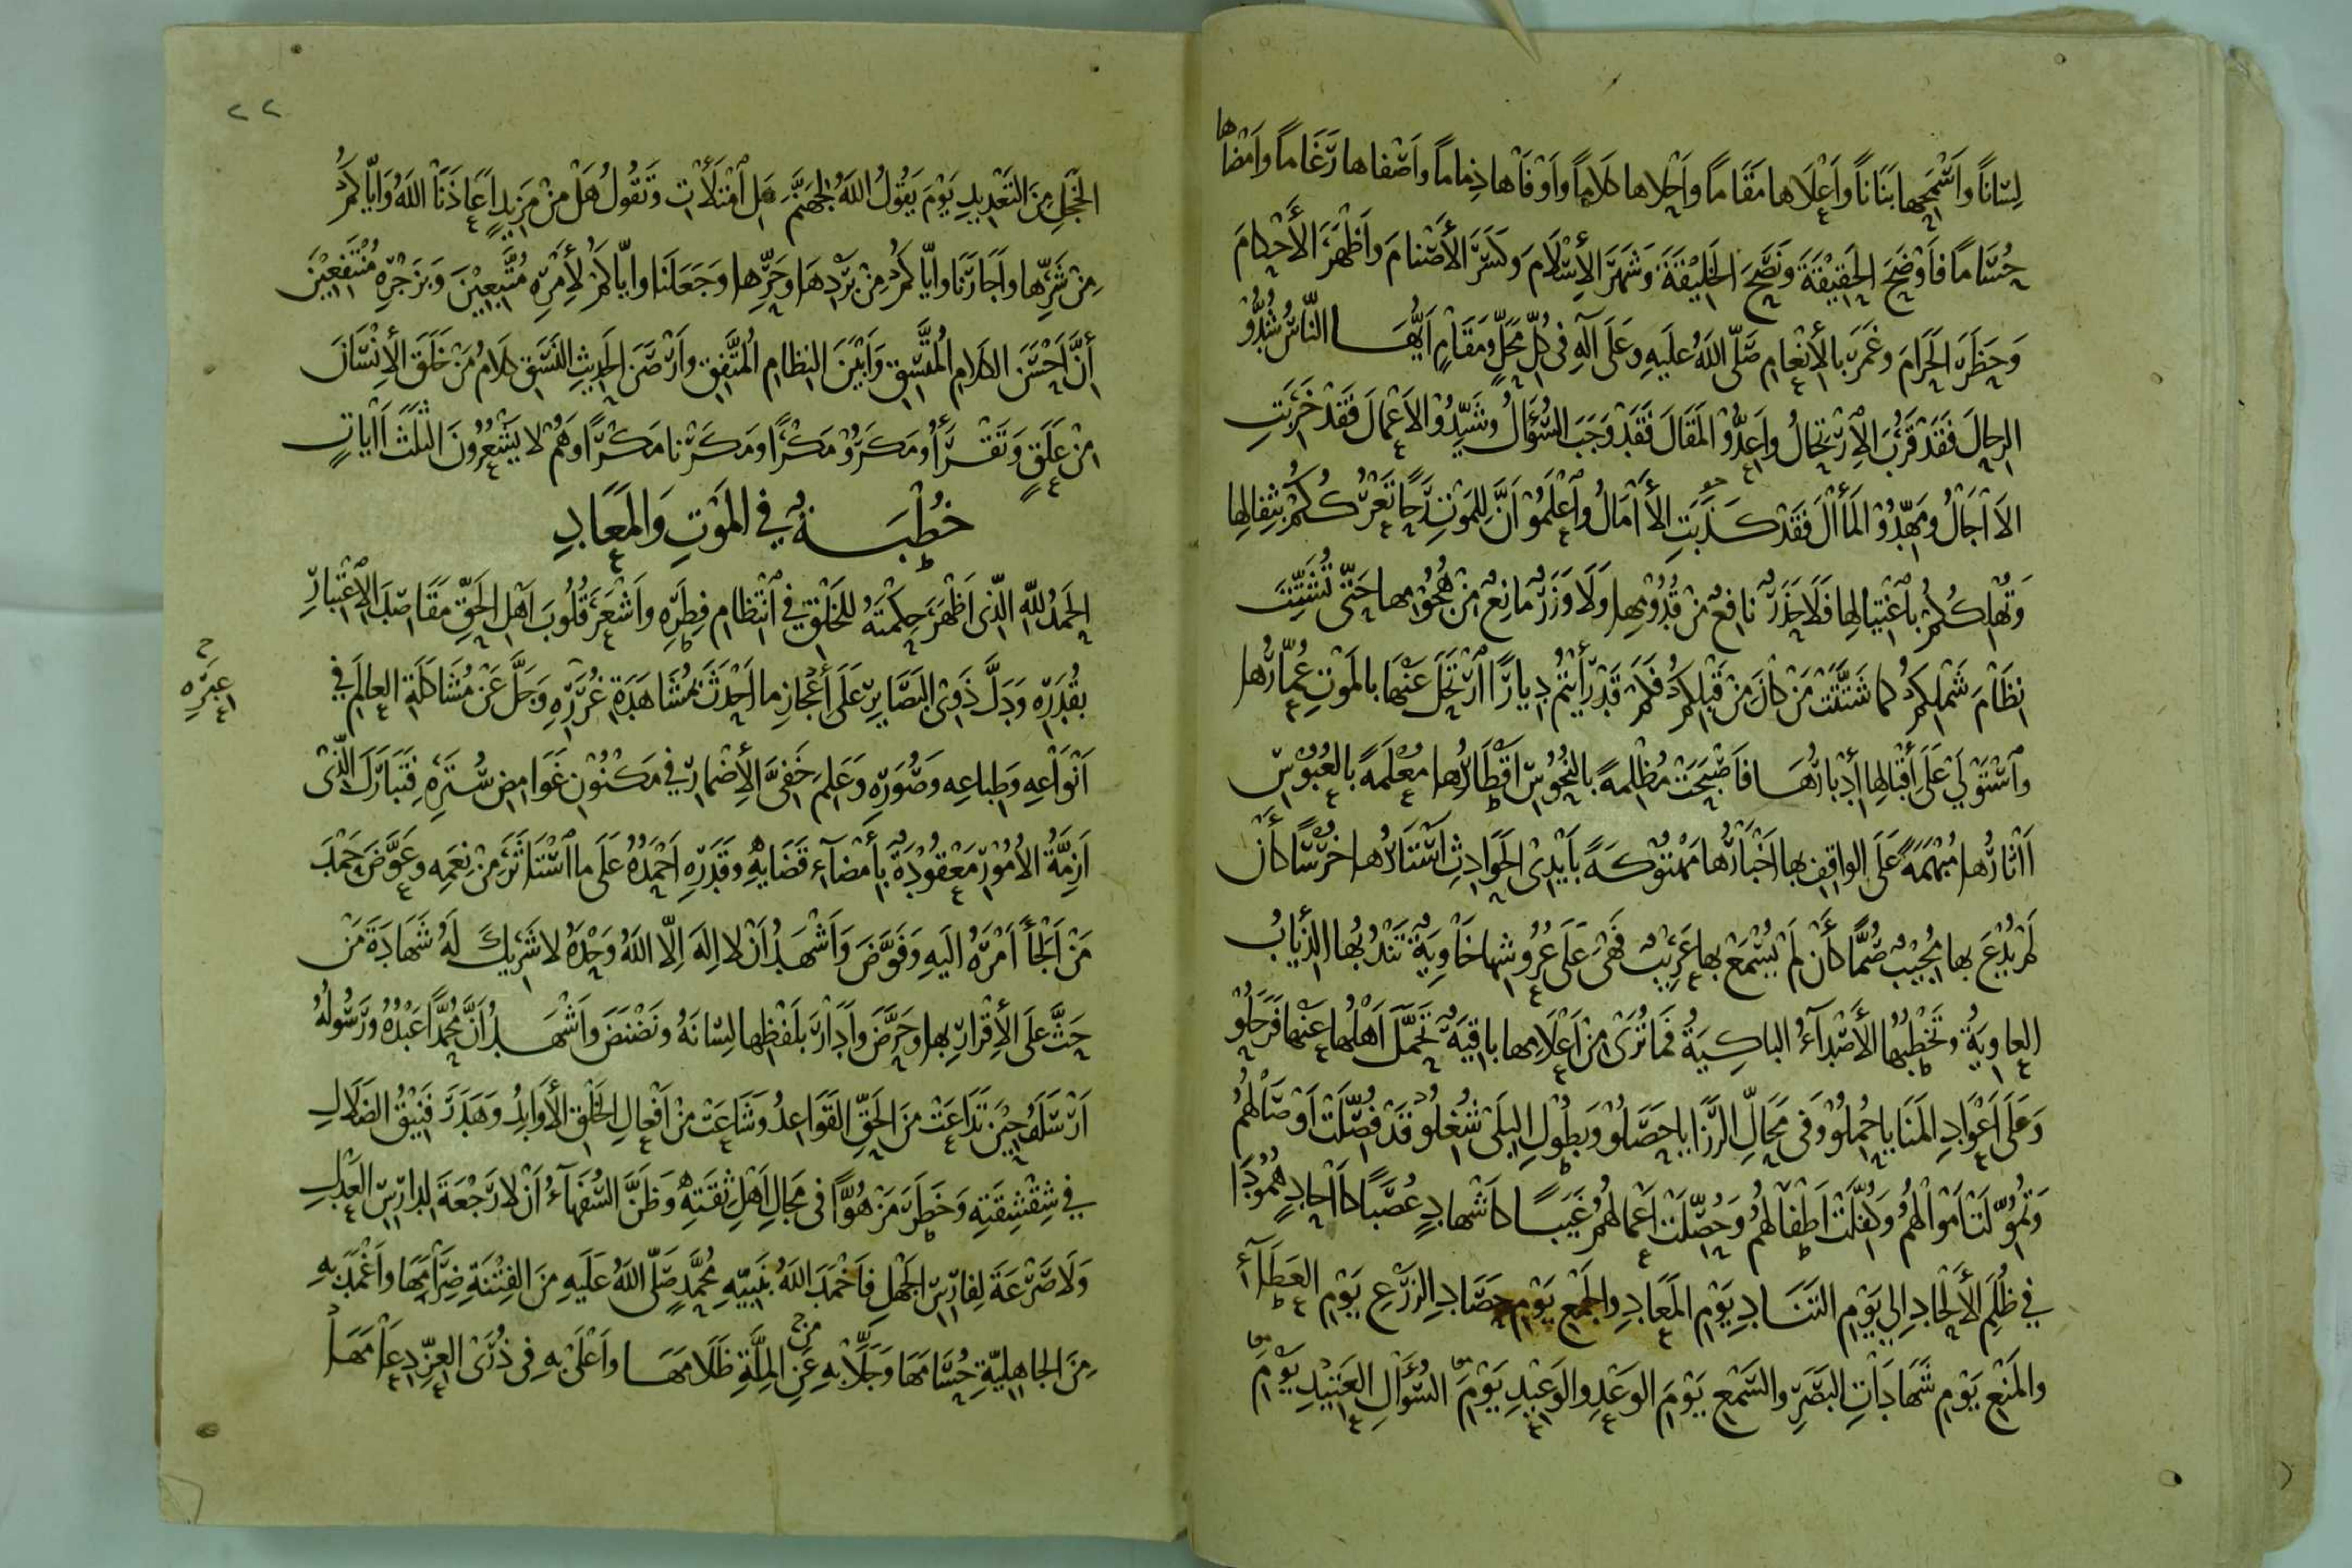 لِسَاناً وَاَسْمَحِها بَنَاناً وَاَعْلَاها مَقَاماً وَاَحْلاها كَلَاماً وَاَوْفَاها ذِماماً وَاَصْفاها رَغَاماً وَاَمْضَاها
حُسَاماً فَاَوْضَحَ الحَقِيْقَةَ وَنَصَحَ الخَلِيْقَةَ وَشَهَرَ الاِسْلَامَ وَكَسَّرَ الأَصْنامَ وَاَظْهَرَ الأَحْكامَ
وَحَظَرَ الحَرَامَ وَغَمَرَ بالأِنْعَامِ صَلّى اللهُ عَلَيهِ وَعَلَى آلهِ في كُلِّ مَحَلٍّ وَمَقَامٍ اَيُّهَا النّاسُ شُدُّوْا
الرِحالَ فَقَدْ قَرُبَ الاِرْتِحَالُ وَاَعِدُّوْا المَقَالَ فَقَدْ وَجَبَ السُؤَالُ وَشَيِّدُوْا الاَعْمَالَ فَقَدْ خَرِبَتِ
الآجَالُ وَمَهِّدُوْا المَأَالَ فَقَدْ كَذَبَتِ الأَامَالُ وَاعْلَمُوْا اَنَّ لِلمَوْتِ رَحاً تَعْرُكُكُمْ بِثِفَالِها
وَتُهْلِكُكُمْ بِاغْتِيَالِها فَلَا حَذَرٌ نَافِعٌ مِنْ قُدُوْمِها وَلَا وَزَرٌ مَانِعٌ مِنْ هُجُوْمِها حَتّى تُشَتِّتَ
نِظَامَ شَمْلِكُمْ كما شَتَّتَتْ مَنْ كانَ مِنْ قَبْلِكُمْ فَكَمْ قَدْ رَأَيْتُمْ دِيارًا ارْتَحَلَ عَنْهَا بالمَوْتِ عُمّارُها
وَاسْتَوْلَى عَلَى اَقْبَالِها اَدْبَارُهَا فَاَصْبَحَتْ مُظْلِمةً بالنُحُوْسِ اَقْطَارُها مُعْلَمَةً بالعُبُوْسِ
اَاثَارُها مُبْهَمَةً عَلَى الواقِفِ بها اَخْبَارُها مَهْتُوْكَةً بِاَيْدِى الحَوَادِثِ اَسْتَارُها خُرْسًا كأَنْ
لَمْ يُدْعَ بها مُجِيْبٌ صُمًّا كأَنْ لَمْ يُسْمَعْ بها عَرِيْبٌ فَهِىَ عَلَى عُرُوشِها خَاوِيَةٌ تَنْدُبُها الذِيَابُ
العاوِيَةُ وَتَخْطُبُها الأَصْدَآءُ الباكِيَةُ فَمَا تُرَى مِنْ اَعْلَامِها باقِيَةٌ تَحَمَّلَ اَهْلُها عَنْها فَرَحَلُوْا
وَعَلَى اَعْوَادِ المَنَايا حُمِلُوْا وَفى مَحَالِّ الرَزَايا حَصَلُوْا وَبطُوْلِ البِلَى شُغِلُوْا قَدْ فُصِّلَتْ اَوْصَالُهُمْ
وَتُمُوِّلَتْ اَمْوَالُهُمْ وَكُفِلَتْ اَطْفَالُهُمْ وَحُصِّلَتْ اَعْمَالُهُمْ غَيَبًا كاَشْهادٍ عُصَبًا كاَاحَادٍ هُمُوْدًا
في ظُلَمِ الأَلْحَادِ اِلى يَوْمِ التَنَادِ يَوْمِ المَعَادِ وَالجَمْعِ يَوْمِ حَصَادِ الزَرْعِ يَوْمِ العَطَآءِ
وَالمَنْعِ يَوْمِ شَهَادَاتِ البَصَرِ وَالسَمْعِ يَوْمَ الوَعْدِ وَالوَعِيْدِ يَوْمَ السُؤَالِ العَنِيْدِ يَوْمَ
٢٢
الخَجَلِ مِنَ التَعْدِيدِ يَوْمَ يَقُوْلُ اللهُ لِجَهَنَّمَ هَلِ امْتَلَأْتِ وَتَقُولُ هَلْ مِنْ مَزِيدٍ اَعَاذَنَا اللهُ وَاِيّاكُمْ
مِنْ شَرِّها وَاَجَارَنَا وَايّاكُمْ مِنْ بَرْدِهَا وَحَرِّها وَجَعَلَنا وَايّاكُمْ لأَمْرِهِ مُتَّبِعِيْنَ وَبِزَجْرِهِ مُنْتَفِعِيْنَ
أَنَّ اَحْسَنَ الكَلامِ المُتَّسِقِ وَاَبْيَنَ النِظامِ المُتَّفِقِ وَاَرْصَنَ الحَدِيثِ النَسَقِ كَلَامُ مَنْ خَلَقَ الاِنْسَانَ
مِنْ عَلَقٍ وَتَقْرَأُ وَمَكَرُوْا مَكْرًا وَمَكَرْنا مَكْرًا وَهُمْ لا يَشْعُرُونَ الثَلَثَ اَايَاتٍ
خُطْبَةٌ في المَوْتِ وَالمَعَادِ
الحَمْدُ للهِ الّذِى اَظْهَرَ حِكْمَتَهُ للخَلْقِ في انْتِظامِ فِطَرِهِ وَاَشْعَرَ قُلُوبَ اَهْلِ الحَقِّ مَقَاصِدَ الاِعْتِبَارِ
بقُدَرِهِ وَدَلَّ ذَوِى البَصَايِرِ عَلَى اَعْجَازِ ما اَحْدَثَ بمُشَاهَدَةِ غُرَرِهِ وَجَلَّ عَنْ مُشَاكَلَةِ العالَمِ في
عِبَرِهِ
اَنْوَاعِهِ وَطِباعِهِ وَصُوَرِهِ وَعَلِمَ خَفِىَّ الأِضْمارِ في مَكْنُوْنِ غَوَامِضِ سُتَرِهِ فَتَبَارَكَ الّذِىْ
اَزِمَّةُ الأُمُوْرِ مَعْقُوْدَةٌ بِأَمْضَآءِ قَضَايِهِ وَقَدَرِهِ اَحْمَدُهُ عَلَى ما اسْتَاثَرَ مِنْ نِعَمِهِ وَعَوَّضَ حَمْدَ
مَنْ اَلْجَأَ اَمْرَهُ اِلَيهِ وَفَوَّضَ وَاَشْهَدُ اَنْ لا اِلهَ اِلّا اللهُ وَحْدَهُ لا شَرِيكَ لَهُ شَهَادَةَ مَنْ
حَثَّ عَلَى الأِقْرَارِ بِها وَحَرَّضَ وَاَدَارَ بلَفْظِها لِسَانَهُ وَنَضْنَضَ وَاَشْهَدُ اَنَّ مُحَمَّدًا عَبْدُهُ وَرَسُولُهُ
اَرْسَلَهُ حِيْنَ تَدَاعَتْ مِنَ الحَقِّ القَوَاعِدُ وَشَاعَتْ مِنْ اَفْعالِ الخَلْقِ الأَوَابِدُ وَهَدَرَ فَنِيْقُ الضَلَالِ
في شِقْشِقَتِهِ وَخَطَرَ مَزْهُوًّا في مَجَالِ اَهْلِ ثِقَتِهِ وَظَنَّ السُفَهَآءُ اَنْ لا رَجْعَةَ لِدَارِسِ العَدْلِ
وَلَا صَرْعَةَ لِفَارِسِ الجَهْلِ فَاَخْمَدَ اللهُ بِنَبِيِّهِ مُحَمَّدٍ صَلّى اللهُ عَلَيهِ مِنَ الفِتْنَةِ ضِرَامَهَا وَاَغْمَدَ بهِ
مِنَ الجَاهِلِيّةِ حُسَامَهَا وَجَلَا بهِ عَنِ المِلَّةِ ظَلَامَهَا وَاَعْلَى بهِ فِى ذُرَى العِزِّ دِعَامَهَا